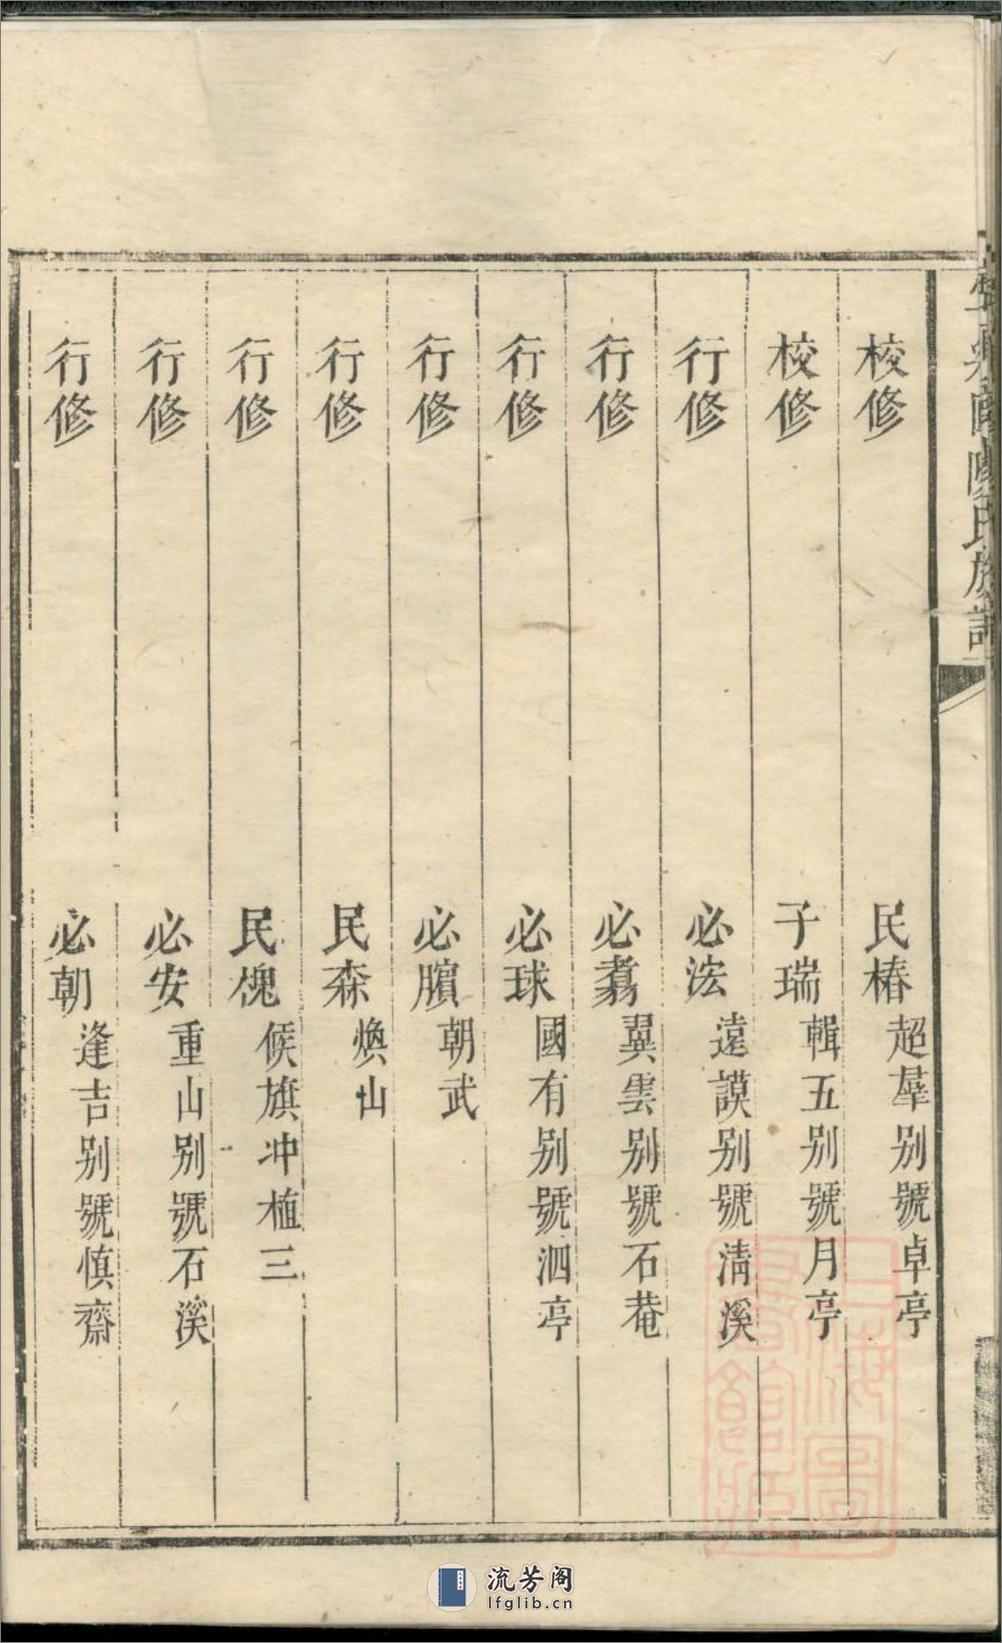 校修 民椿 超羣别號卓亭
校修 子瑞 輯五别號月亭
行修 必浤 遠謨别號清溪
行修 必翥 翼雲别號石菴
行修 必球 國有别號泗亭
行修 必臏 朝武
行修 民森 煥山
行修 民槐 候旗冲植三
行修 必安 重山别號石溪
行修 必朝 逢吉别號慎齋
流芳阁
lfglib.cn